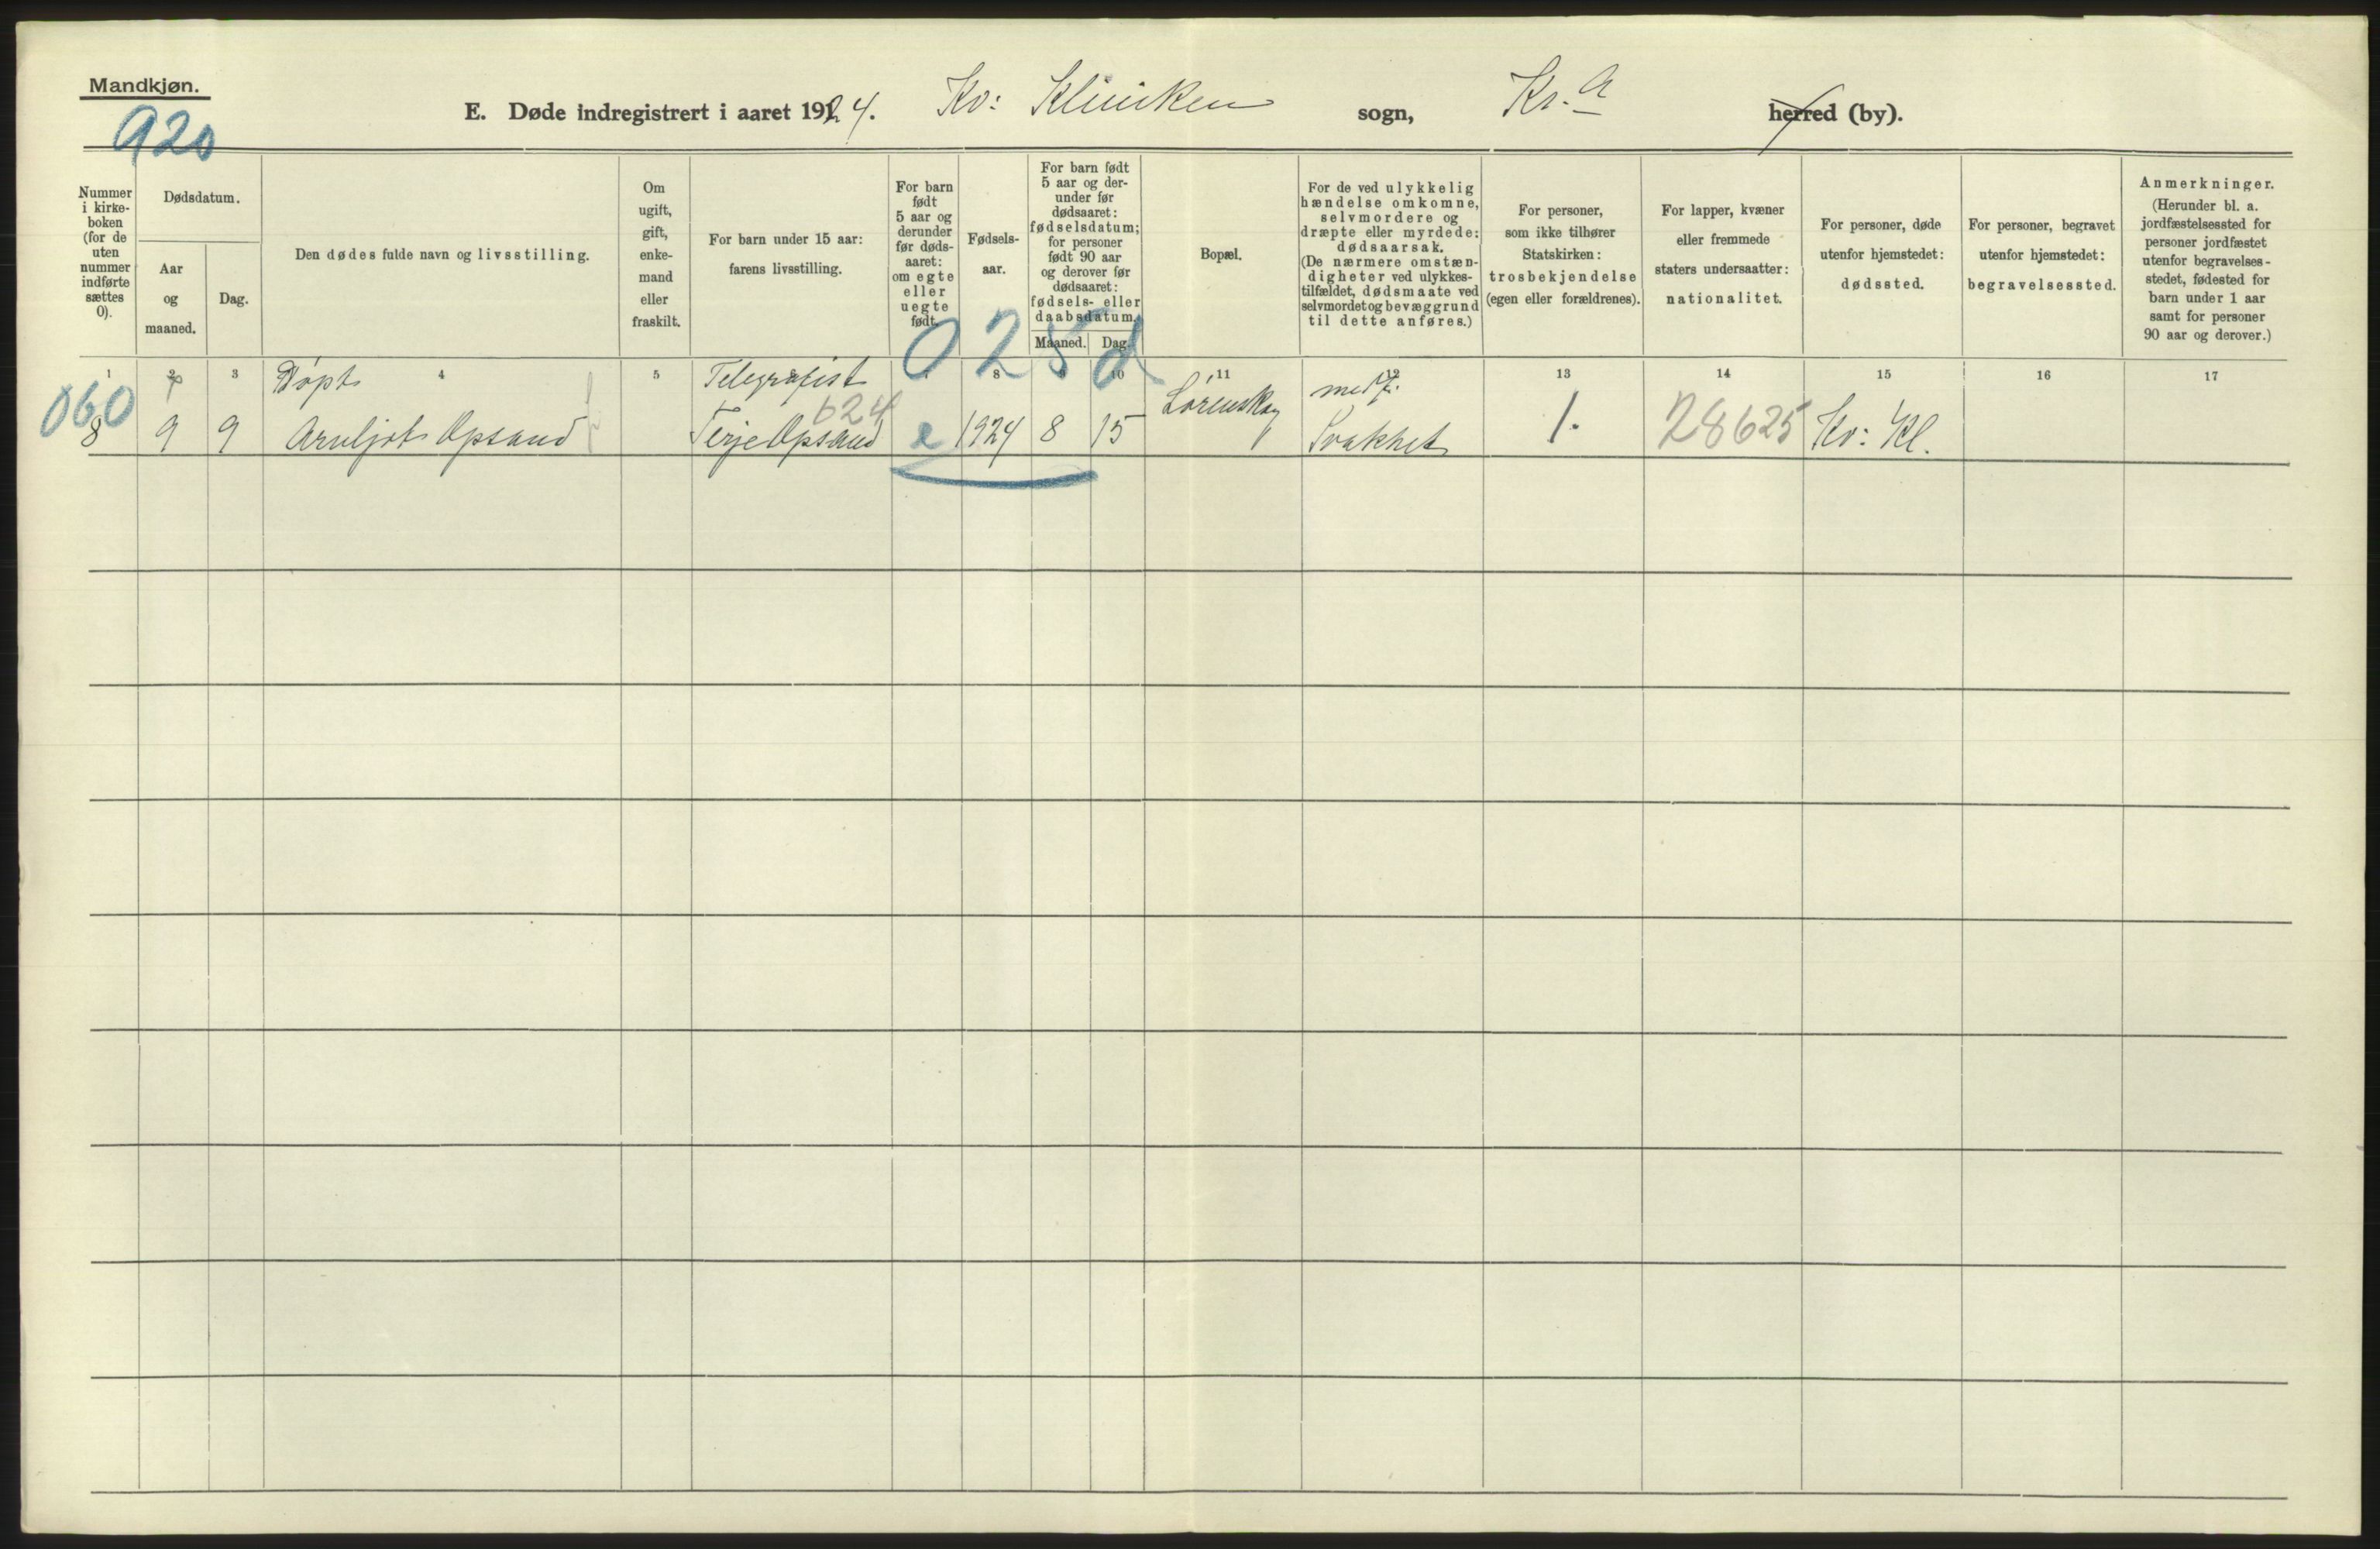 Mandkjøn.
920
E. Døde indregistrert i aaret 1924. Kv: Kliniken sogn, Kr.a herred (by).
Nummer
i kirke-
boken
(for de
uten
nummer
indførte
sættes
0).
Dødsdatum.
Aar
og
maaned.
Dag.
Den dødes fulde navn og livsstilling.
Om
ugift,
gift,
enke-
mand
eller
fraskilt.
For barn under 15 aar:
farens livsstilling.
For barn
født
5 aar og
derunder
før døds-
aaret:
om egte
eller
uegte
født.
Fødsels-
aar.
For barn født
5 aar og der-
under før
dødsaaret:
fødselsdatum;
for personer
født 90 aar
og derover før
dødsaaret:
fødsels- eller
daabsdatum.
Maaned. Dag.
Bopæl.
For de ved ulykkelig
hændelse omkomne,
selvmordere og
dræpte eller myrdede:
dødsaarsak.
(De nærmere omstæn-
digheter ved ulykkes-
tilfældet, dødsmaate ved
selvmordet og bevæggrund
til dette anføres.)
For personer,
som ikke tilhører
Statskirken:
trosbekjendelse
(egen eller forældrenes).
For lapper, kvæner
eller fremmede
staters undersaatter:
nationalitet.
For personer, døde
utenfor hjemstedet:
dødssted.
For personer, begravet
utenfor hjemstedet:
begravelsessted.
Anmerkninger.
(Herunder bl. a.
jordfæstelsessted for
personer jordfæstet
utenfor begravelses-
stedet, fødested for
barn under 1 aar
samt for personer
90 aar og derover.)
025d
1 2 3 4 5 8 10 11 12 13 14 15 16 17
Døpt Telegrafist medf.
060 624 Lørenskog
8 9 9 Arnljot Opsand Terje Opsand e 1924 8 15 Svakhet 1. 28625 Kv: Kl.